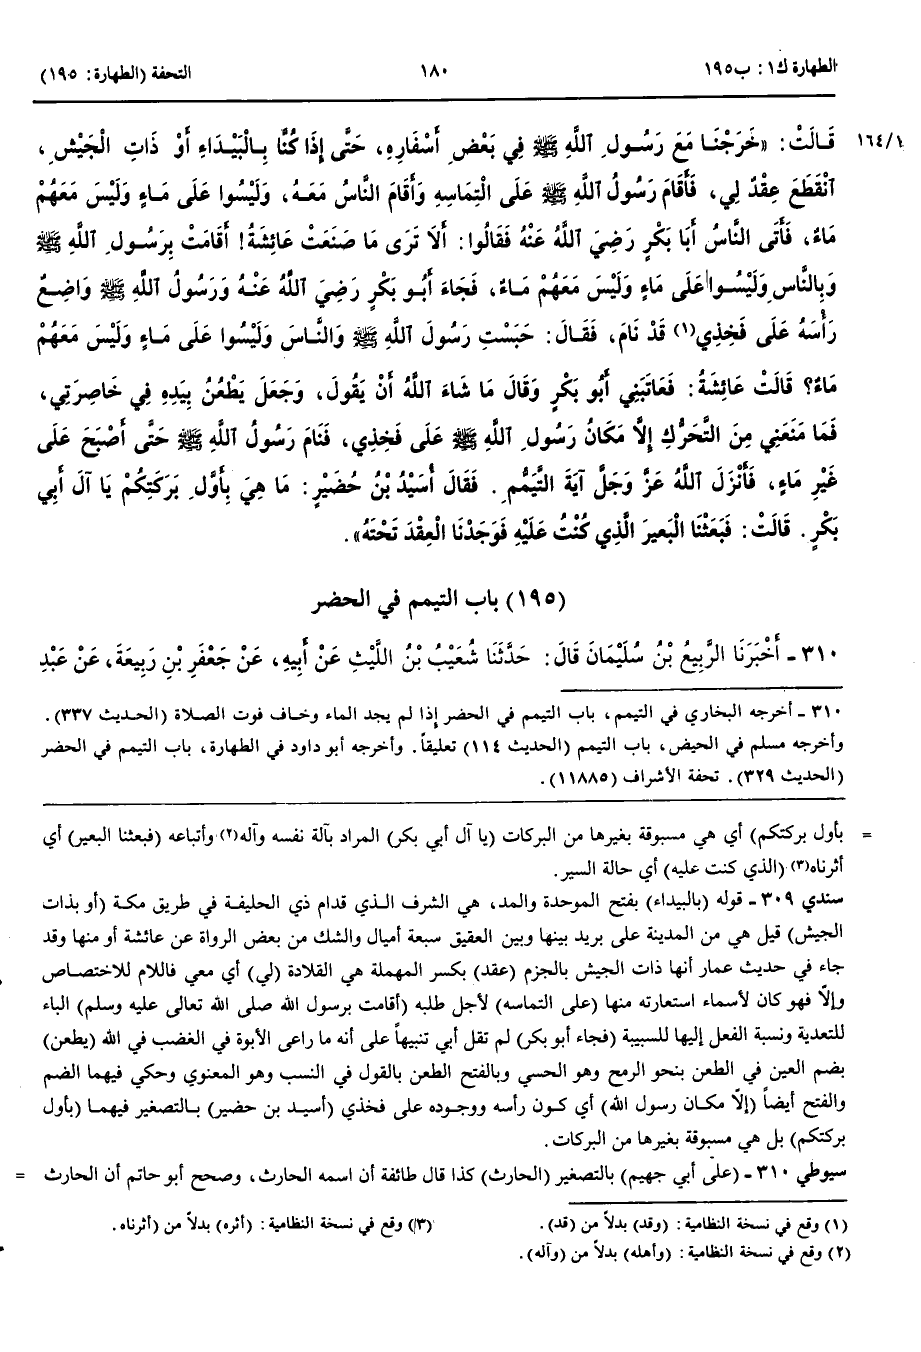 الطهارة ك١: ب١٩٥ ١٨٠ التحفة (الطهارة: ١٩٥)
١٦٤/١ قَالَتْ: «خَرَجْنَا مَعَ رَسُولِ ٱللَّهِ ﷺ فِي بَعْضِ أَسْفَارِهِ، حَتَّى إِذَا كُنَّا بِالْبَيْدَاءِ أَوْ ذَاتِ الْجَيْشِ،
ٱنْقَطَعَ عِقْدٌ لِي، فَأَقَامَ رَسُولُ ٱللَّهِ ﷺ عَلَى الْتِمَاسِهِ وَأَقَامَ النَّاسُ مَعَهُ، وَلَيْسُوا عَلَى مَاءٍ وَلَيْسَ مَعَهُمْ
مَاءٌ، فَأَتَى النَّاسُ أَبَا بَكْرٍ رَضِيَ ٱللَّهُ عَنْهُ فَقَالُوا: أَلَا تَرَى مَا صَنَعَتْ عَائِشَةُ! أَقَامَتْ بِرَسُولِ ٱللَّهِ ﷺ
وَبِالنَّاسِ وَلَيْسُوا عَلَى مَاءٍ وَلَيْسَ مَعَهُمْ مَاءٌ، فَجَاءَ أَبُو بَكْرٍ رَضِيَ ٱللَّهُ عَنْهُ وَرَسُولُ ٱللَّهِ ﷺ وَاضِعٌ
رَأْسَهُ عَلَى فَخِذِي(١) قَدْ نَامَ، فَقَالَ: حَبَسْتِ رَسُولَ ٱللَّهِ ﷺ وَالنَّاسَ وَلَيْسُوا عَلَى مَاءٍ وَلَيْسَ مَعَهُمْ
مَاءٌ؟ قَالَتْ عَائِشَةُ: فَعَاتَبَنِي أَبُو بَكْرٍ وَقَالَ مَا شَاءَ ٱللَّهُ أَنْ يَقُولَ، وَجَعَلَ يَطْعُنُ بِيَدِهِ فِي خَاصِرَتِي،
فَمَا مَنَعَنِي مِنَ التَّحَرُّكِ إِلَّا مَكَانُ رَسُولِ ٱللَّهِ ﷺ عَلَى فَخِذِي، فَنَامَ رَسُولُ ٱللَّهِ ﷺ حَتَّى أَصْبَحَ عَلَى
غَيْرِ مَاءٍ، فَأَنْزَلَ ٱللَّهُ عَزَّ وَجَلَّ آيَةَ التَّيَمُّمِ. فَقَالَ أُسَيْدُ بْنُ حُضَيْرٍ: مَا هِيَ بِأَوَّلِ بَرَكَتِكُمْ يَا آلَ أَبِي
بَكْرٍ. قَالَتْ: فَبَعَثْنَا الْبَعِيرَ الَّذِي كُنْتُ عَلَيْهِ فَوَجَدْنَا الْعِقْدَ تَحْتَهُ».
(١٩٥) باب التيمم في الحضر
٣١٠ ـ أَخْبَرَنَا الرَّبِيعُ بْنُ سُلَيْمَانَ قَالَ: حَدَّثَنَا شُعَيْبُ بْنُ اللَّيْثِ عَنْ أَبِيهِ، عَنْ جَعْفَرِ بْنِ رَبِيعَةَ، عَنْ عَبْدِ
٣١٠ ـ أخرجه البخاري في التيمم، باب التيمم في الحضر إذا لم يجد الماء وخاف فوت الصلاة (الحديث ٣٣٧).
وأخرجه مسلم في الحيض، باب التيمم (الحديث ١١٤) تعليقاً. وأخرجه أبو داود في الطهارة، باب التيمم في الحضر
(الحديث ٣٢٩). تحفة الأشراف (١١٨٨٥).
= بأول بركتكم) أي هي مسبوقة بغيرها من البركات (يا آل أبي بكر) المراد بآلة نفسه وآله(٢) وأتباعه (فبعثنا البعير) أي
أثرناه(٣) (الذي كنت عليه) أي حالة السير.
سندي ٣٠٩ ـ قوله (بالبيداء) بفتح الموحدة والمد، هي الشرف الذي قدام ذي الحليفة في طريق مكة (أو بذات
الجيش) قيل هي من المدينة على بريد بينها وبين العقيق سبعة أميال والشك من بعض الرواة عن عائشة أو منها وقد
جاء في حديث عمار أنها ذات الجيش بالجزم (عقد) بكسر المهملة هي القلادة (لي) أي معي فاللام للاختصاص
وإلّا فهو كان لأسماء استعارته منها (على التماسه) لأجل طلبه (أقامت برسول الله صلى الله تعالى عليه وسلم) الباء
للتعدية ونسبة الفعل إليها للسببية (فجاء أبو بكر) لم تقل أبي تنبيهاً على أنه ما راعى الأبوة في الغضب في الله (يطعن)
بضم العين في الطعن بنحو الرمح وهو الحسي وبالفتح الطعن بالقول في النسب وهو المعنوي وحكي فيهما الضم
والفتح أيضاً (إلّا مكان رسول الله) أي كون رأسه ووجوده على فخذي (أسيد بن حضير) بالتصغير فيهما (بأول
بركتكم) بل هي مسبوقة بغيرها من البركات.
سيوطي ٣١٠ ـ (على أبي جهيم) بالتصغير (الحارث) كذا قال طائفة أن اسمه الحارث، وصحح أبو حاتم أن الحارث =
(١) وقع في نسخة النظامية: (وقد) بدلاً من (قد). (٣) وقع في نسخة النظامية: (أثره) بدلاً من (أثرناه.
(٢) وقع في نسخة النظامية: (وأهله) بدلاً من (وآله).